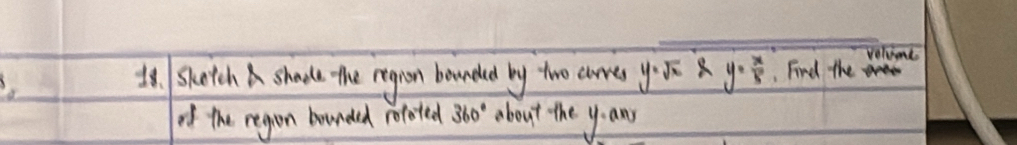 18. Sketch & shade the region bounded by two curves y=√x & y=x/5. Find the volume
of the region bounded rotated 360° about the y-axis